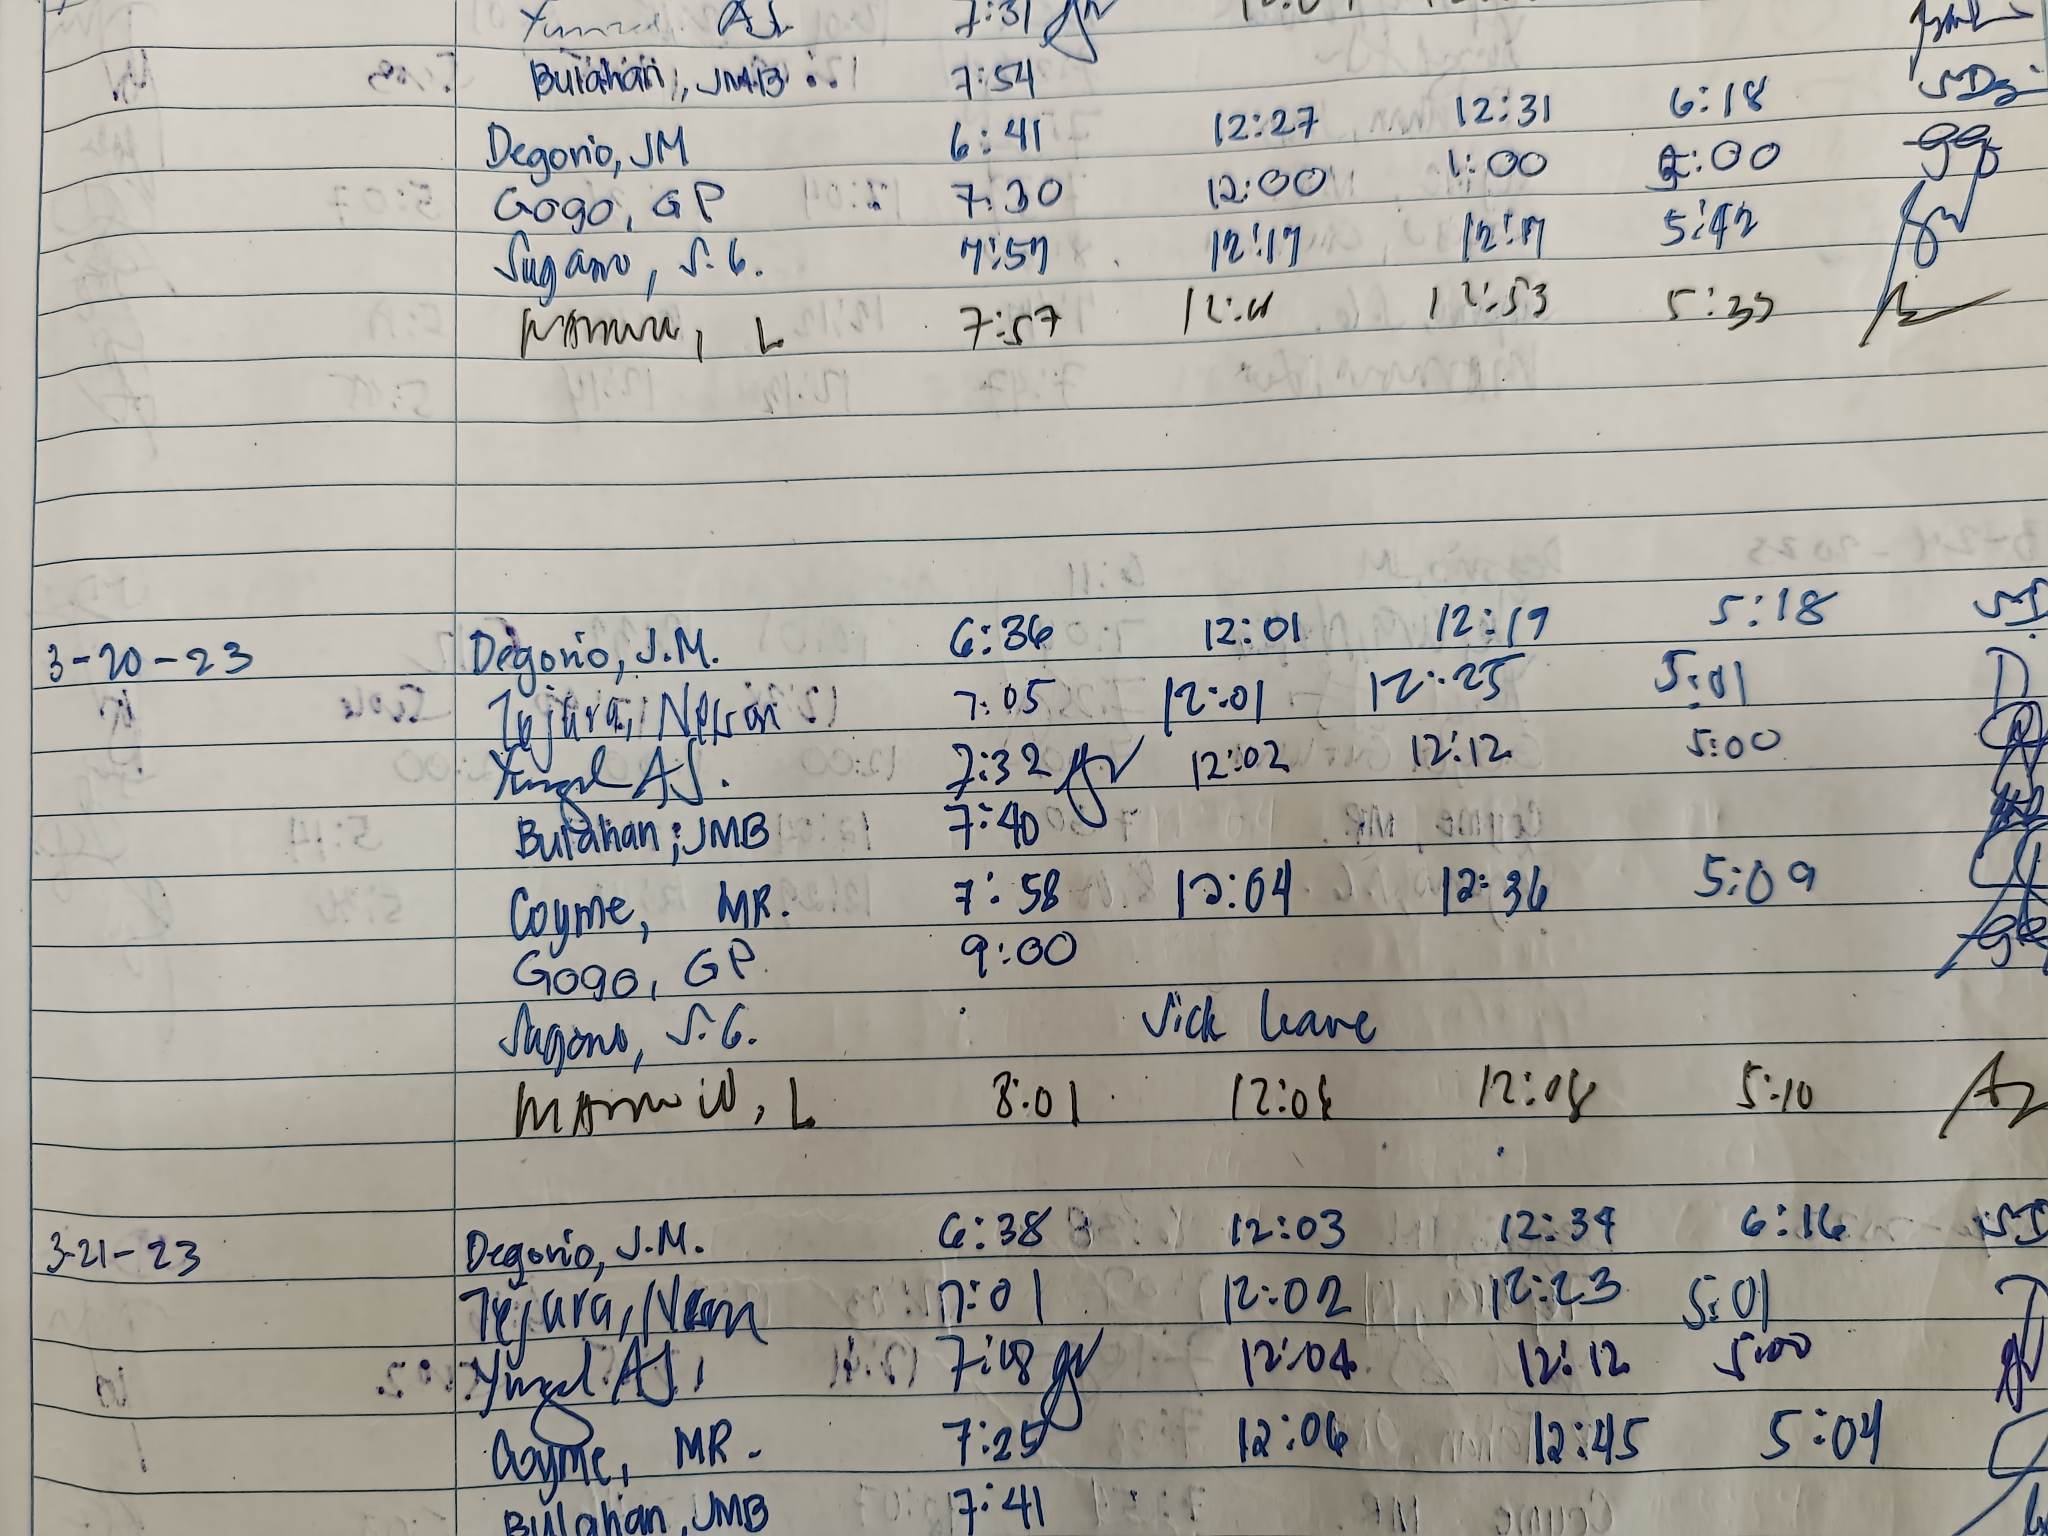 7:31
Bulahan, JMB 7:54
Degorio, JM 6:41 12:27 12:31 6:18
Gogo, GP 7:30 12:00 1:00 5:00
Sugano, S.G. 7:57 12:17 12:17 5:42
L 7:57 12:53 5:33
3-20-23 Degorio, J.M. 6:36 12:01 12:19 5:18
Tejura, Nelson 7:05 12:01 12:25 5:01
AJ. 7:32 12:02 12:12 5:00
Bulahan, JMB 7:40
Coyme, MR. 7:58 12:04 12:36 5:09
Gogo, GP. 9:00
Sugano, S.G. Sick leave
L 8:01 12:06 12:08 5:10
3-21-23 Degorio, J.M. 6:38 12:03 12:34 6:16
Tejura, 7:01 12:02 12:23 5:01
AJ. 12:04 12:12 5:00
Coyme, MR. 7:25 12:06 12:45 5:04
Bulahan, JMB 7:41